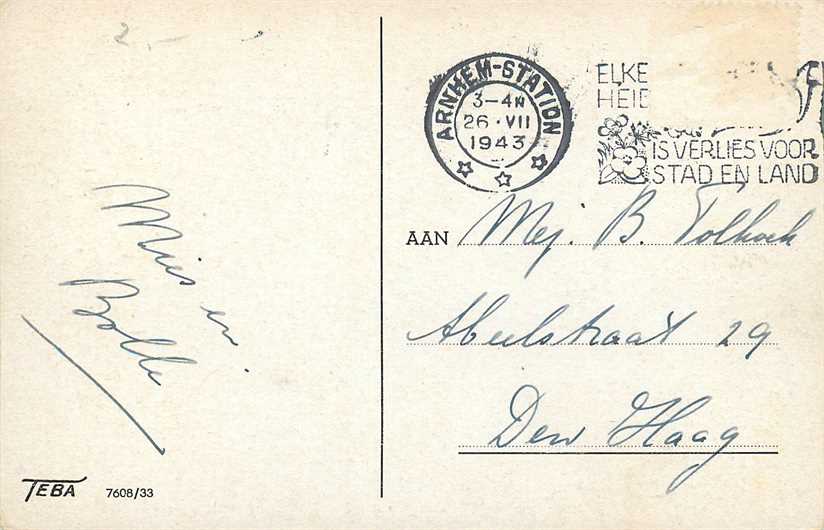 2.-
Mies en
Bolle
TEBA 7608/33
ARNHEM-STATION
3-4N
26·VII
1943
ELKE
HEID
IS VERLIES VOOR
STAD EN LAND
AAN Mej. B. Tolhoek
Abeelstraat 29
Den Haag